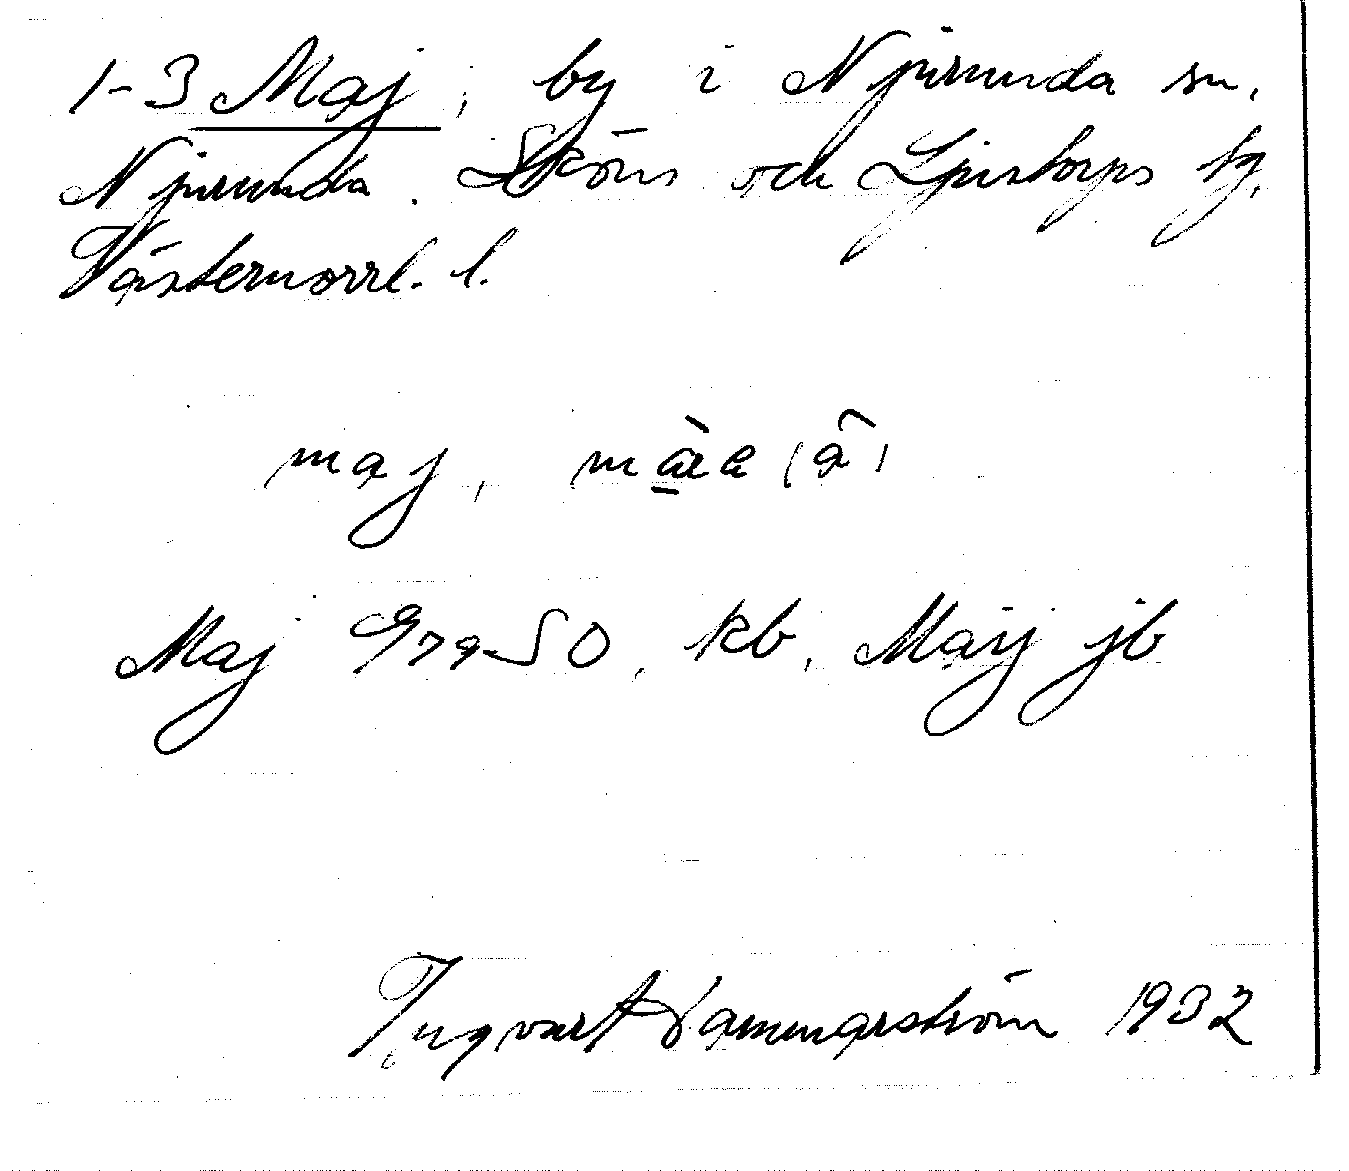 1-3 Maj, by i Njurunda sn,
Njurunda. Sköns och Ljustorps tg,
Västernorrl. l.
maj, (â)
Maj G79 SO, kb, Maij jb
Ingvart Hammarström 1932